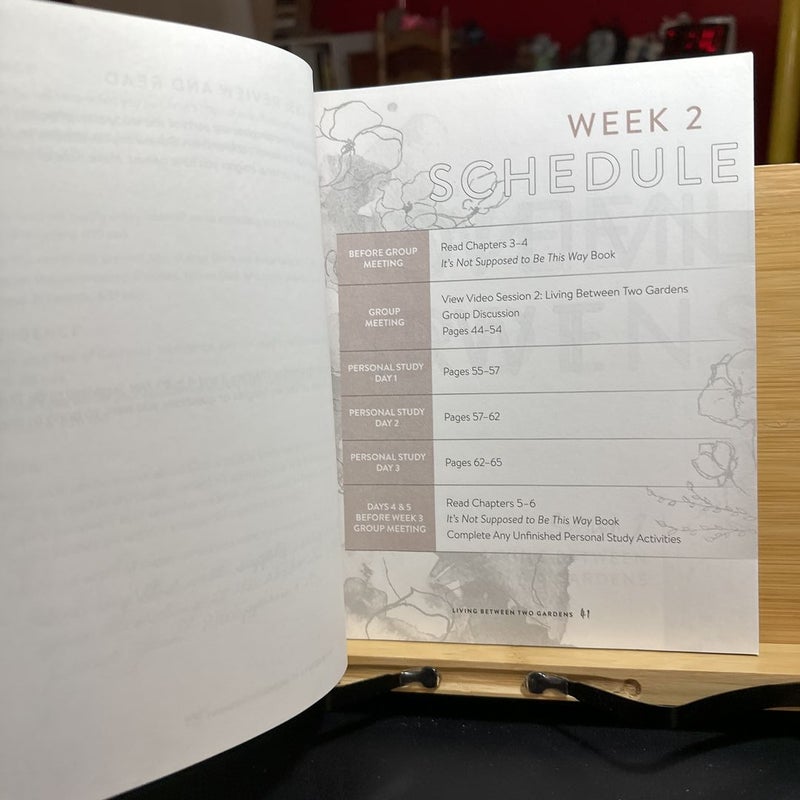 WEEK 2
SCHEDULE
BEFORE GROUP
MEETING
Read Chapters 3–4
It's Not Supposed to Be This Way Book
GROUP
MEETING
View Video Session 2: Living Between Two Gardens
Group Discussion
Pages 44–54
PERSONAL STUDY
DAY 1
Pages 55–57
PERSONAL STUDY
DAY 2
Pages 57–62
PERSONAL STUDY
DAY 3
Pages 62–65
DAYS 4 & 5
BEFORE WEEK 3
GROUP MEETING
Read Chapters 5–6
It's Not Supposed to Be This Way Book
Complete Any Unfinished Personal Study Activities
LIVING BETWEEN TWO GARDENS